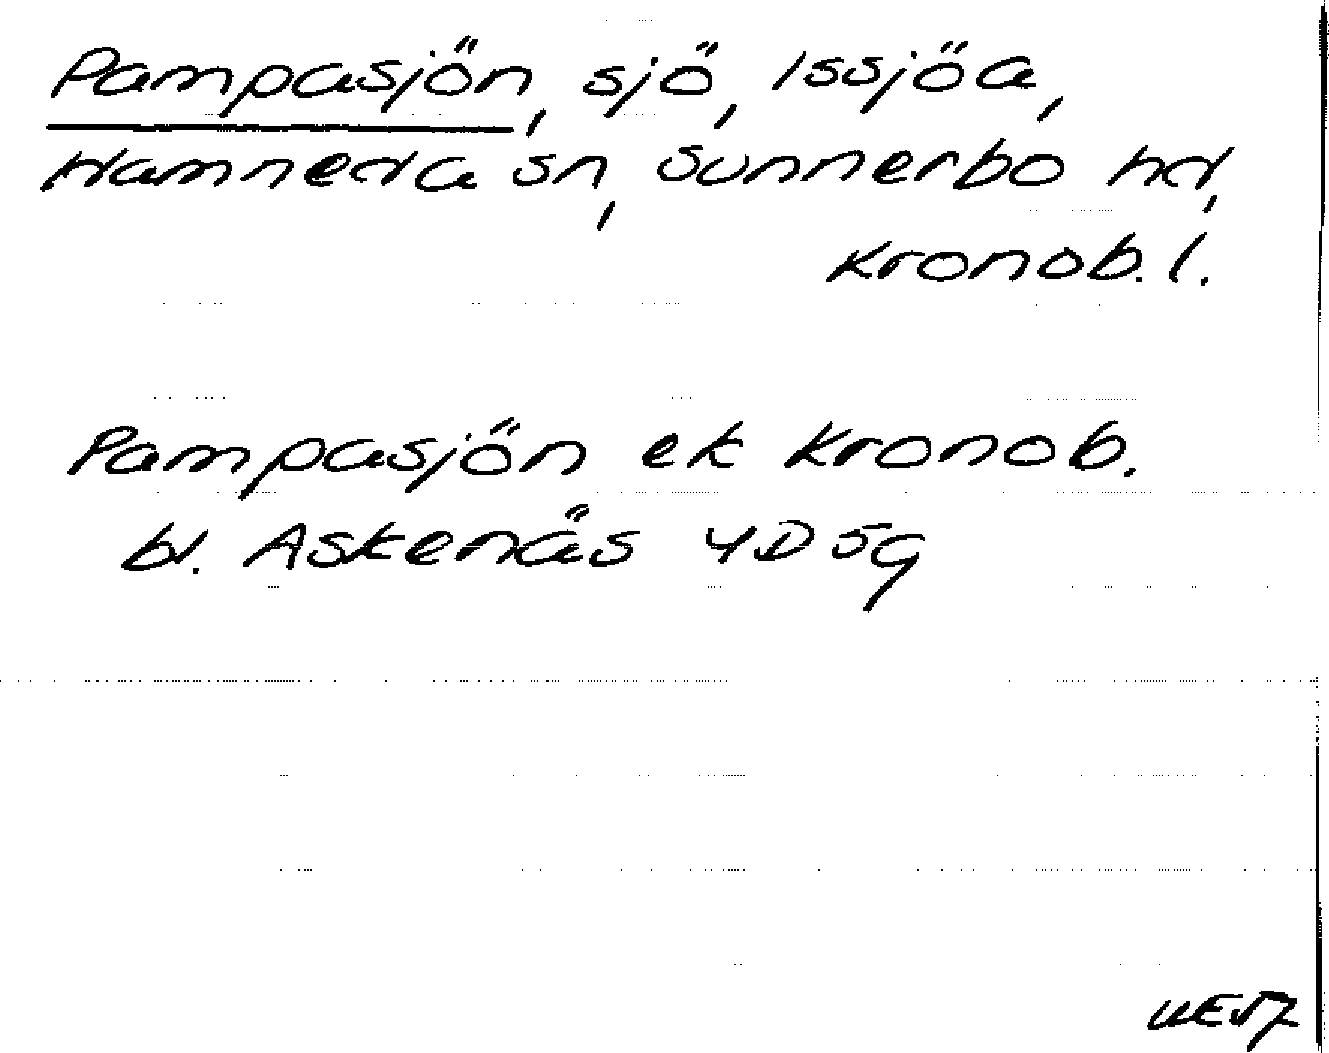 Pampasjön, sjö, Issjöa,
Hamneda sn, Sunnerbo hd,
Kronob. l.
Pampasjön ek Kronob.
bl. Askenäs 4D 5g